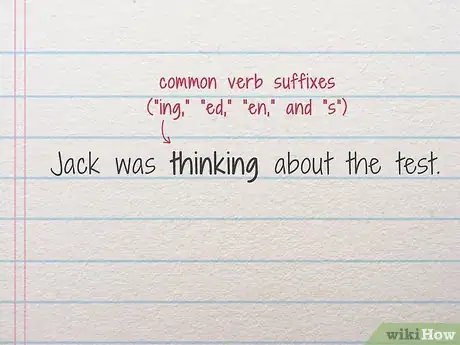 common verb suffixes
("ing," "ed," "en," and "s")
Jack was thinking about the test.
wikiHow